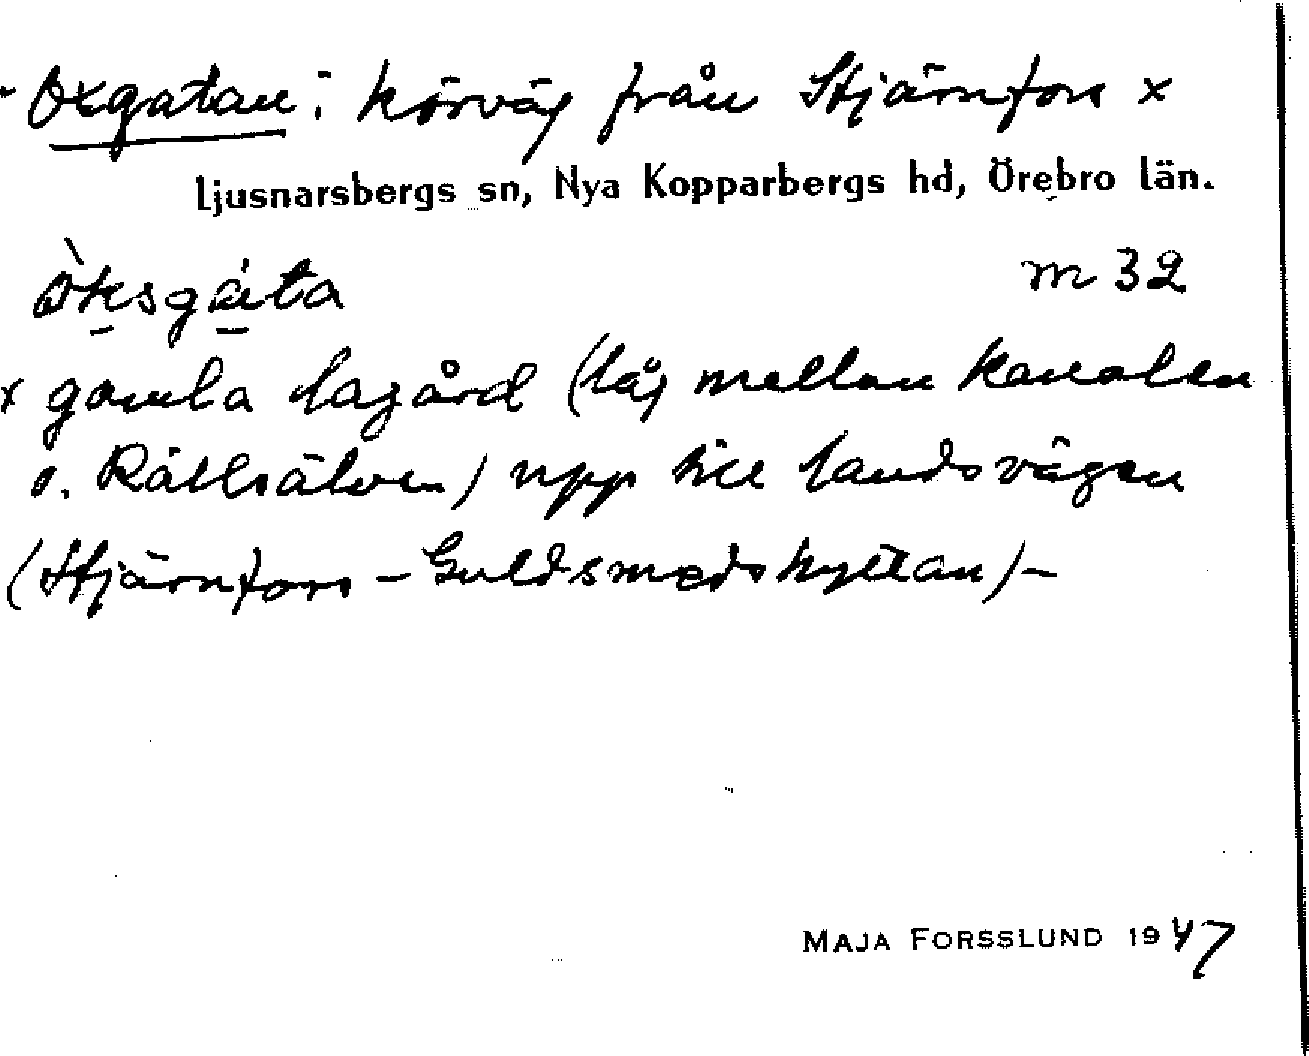 - Oxgatan: körväg från Stjärnfors x
Ljusnarsbergs sn, Nya Kopparbergs hd, Örebro län.
m 32
x gamla lagård (låg mellan kanalen
o. Rällsälven) upp till landsvägen
(Stjärnfors - Guldsmedshyttan) -
MAJA FORSSLUND 1947